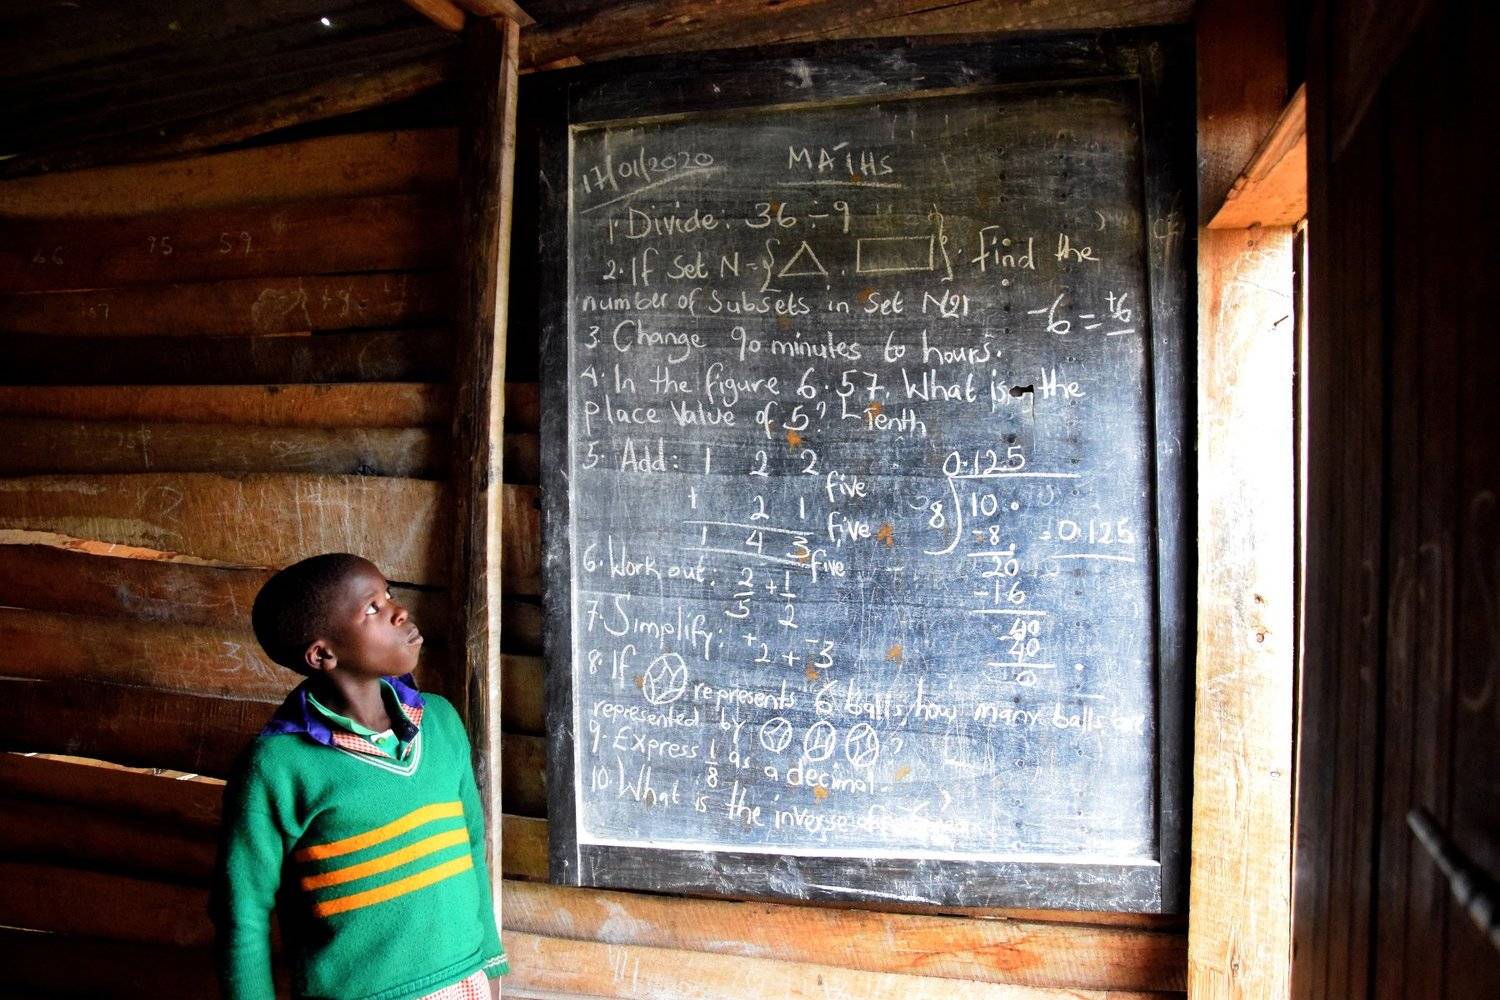 17/01/2020 MATHS
1. Divide: 36 ÷ 9
2. If Set N = { , }. Find the
number of Subsets in Set N
-6 = +6
3. Change 90 minutes to hours.
4. In the figure 6.57. What is the
place value of 5? Tenth
5. Add: 1 2 2 five
+ 2 1 five
1 4 3 five
0.125
8 10
-8 = 0.125
20
-16
40
40
0
6. Work out: 2/5 + 1/2
7. Simplify: +2 + -3
8. If represents 6 balls, how many balls are
represented by ?
9. Express 1/8 as a decimal.
10. What is the inverse of
66 75 59